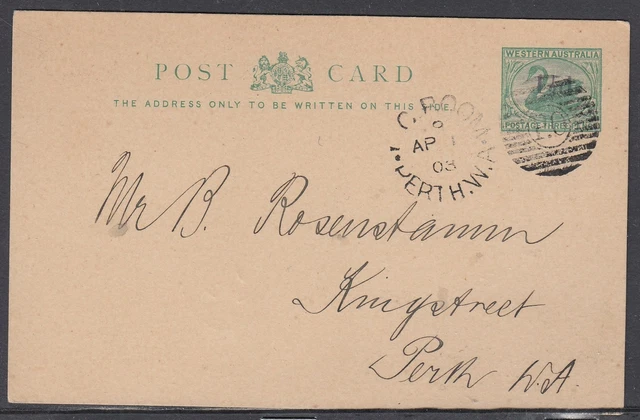 POST CARD
THE ADDRESS ONLY TO BE WRITTEN ON THIS SIDE.
WESTERN AUSTRALIA
1½d
POSTAGE THREE
C. ROOM. W.A
AP 1
03
PERTH. W.A
Mr B. Rosenstamm
Kingstreet
Perth W.A.